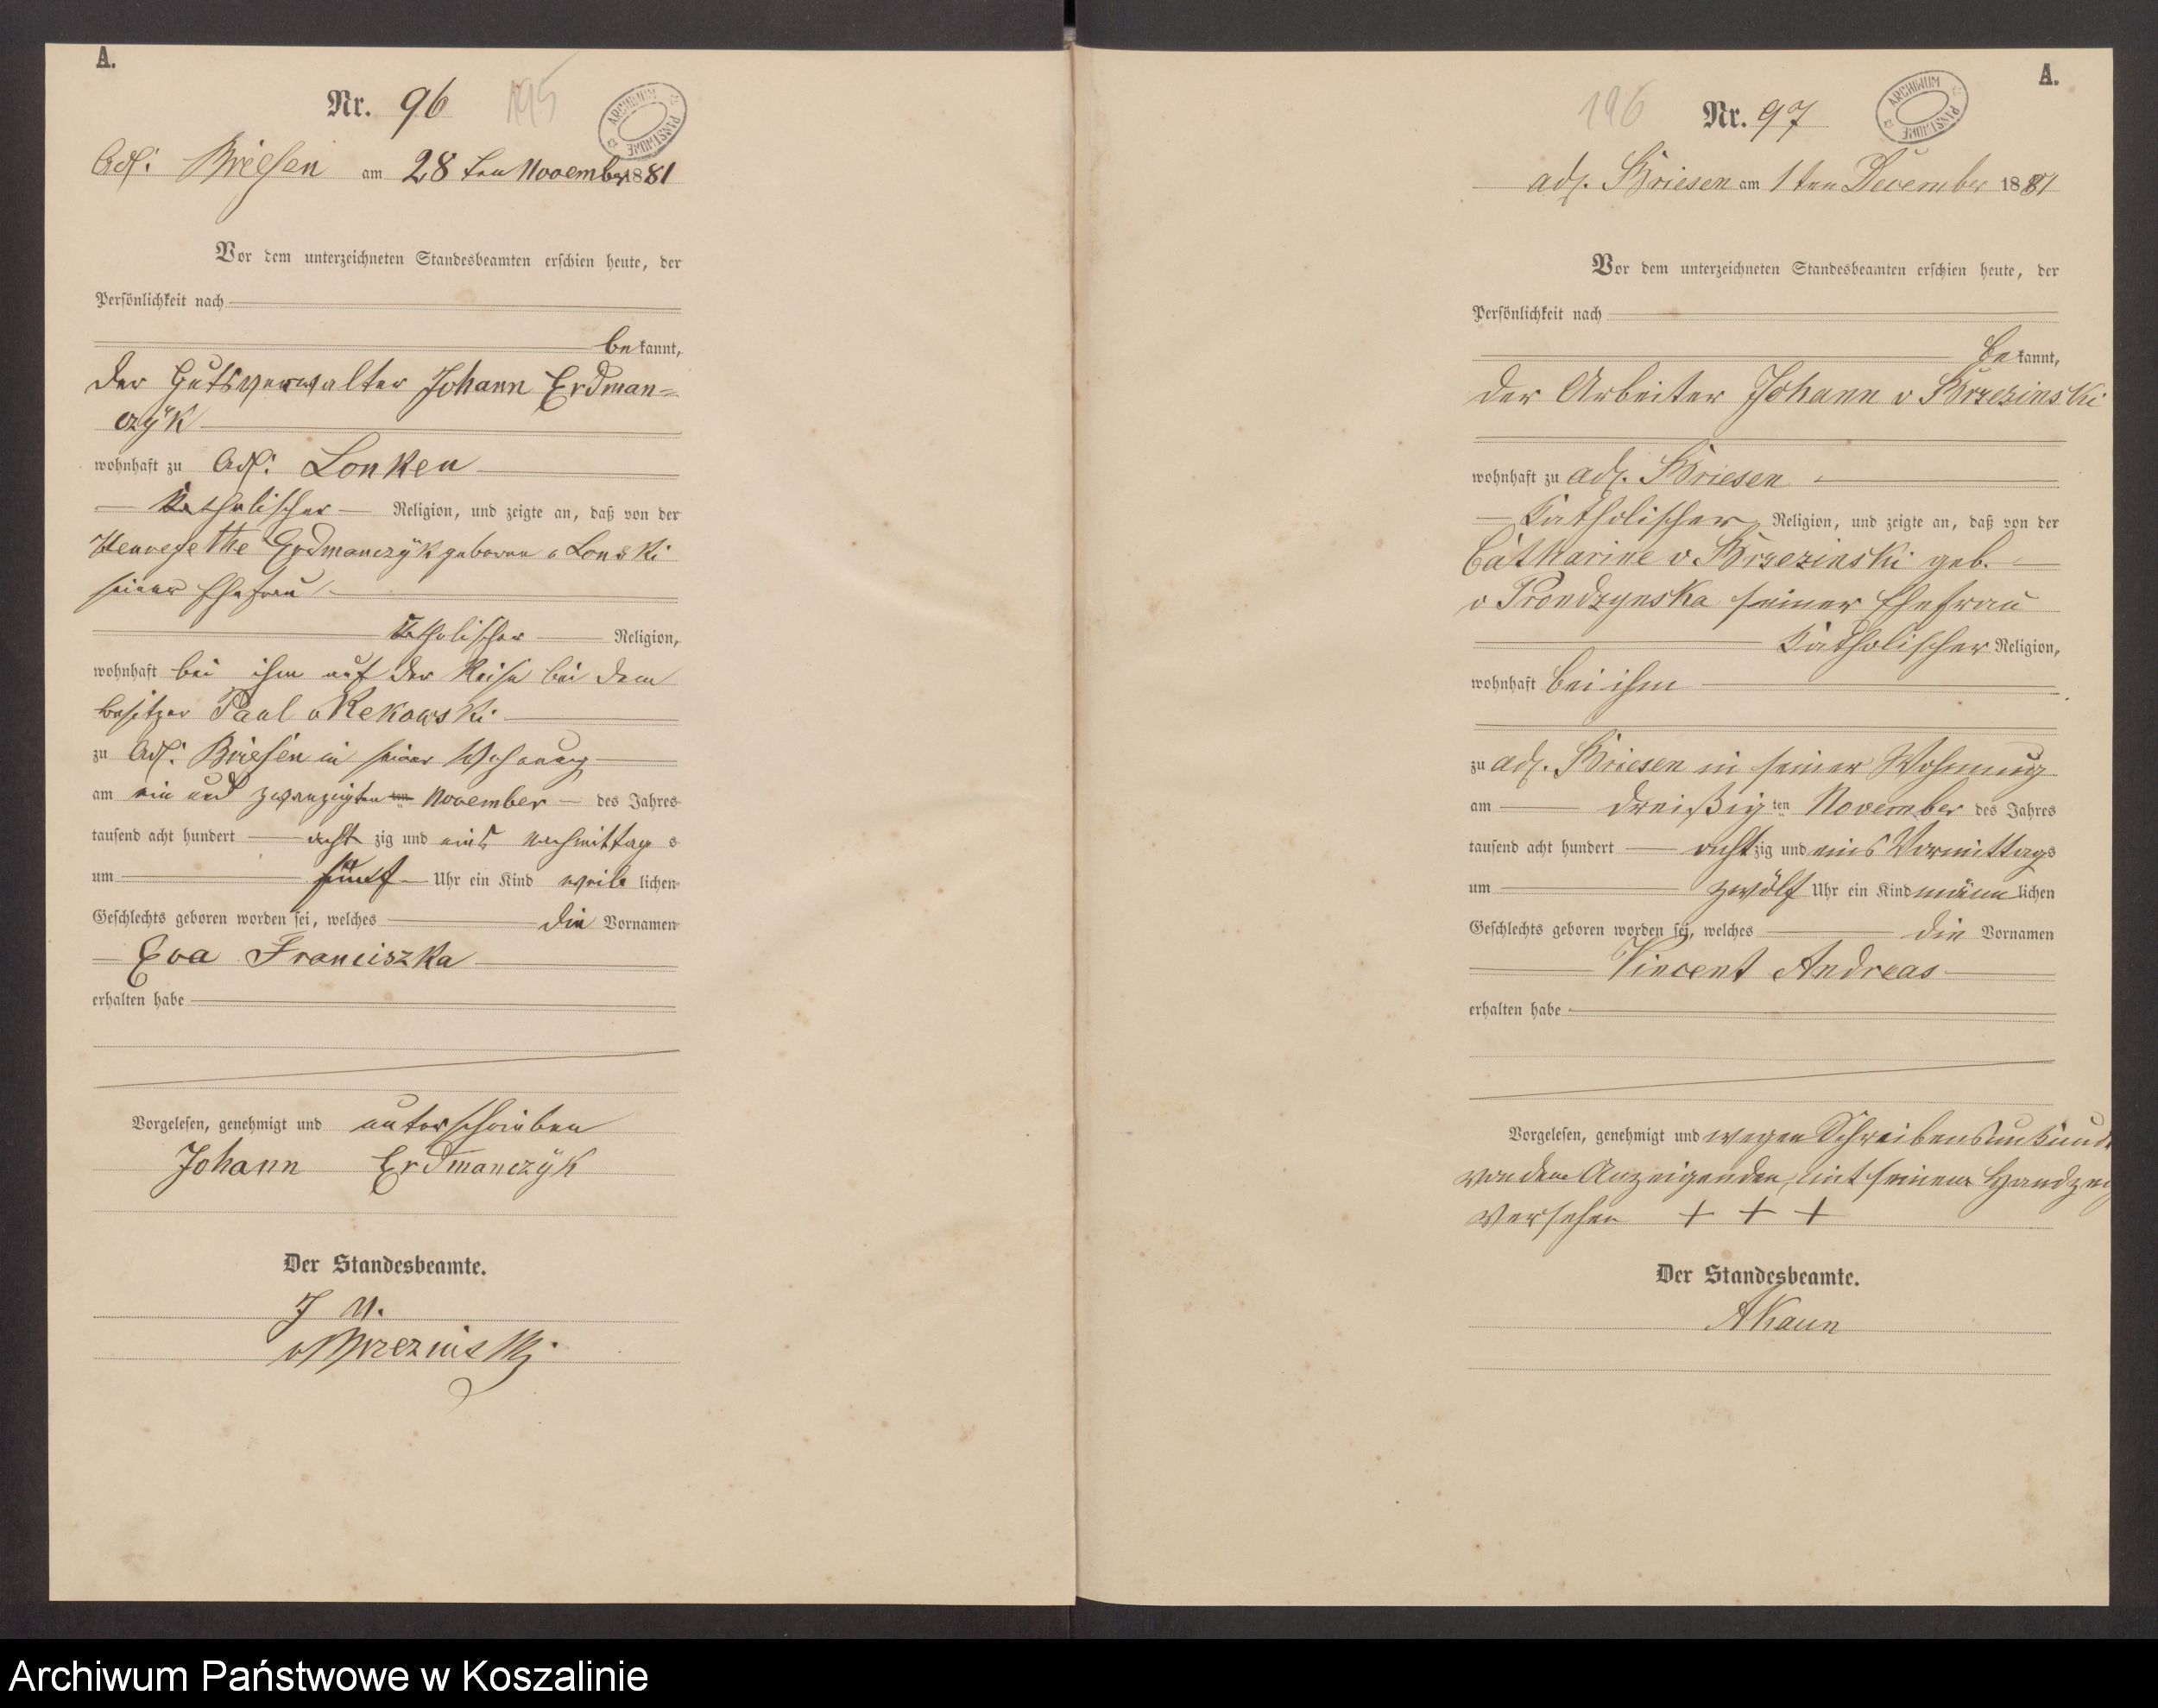 A.
Nr. 96
195
ARCHIWUM PAŃSTWOWE
Adl: Briesen am 28 ten November 1881
Vor dem unterzeichneten Standesbeamten erschien heute, der
Persönlichkeit nach
be kannt,
der Gutsverwalter Johann Erdman=
czÿk
wohnhaft zu Adl: Lonken
katholischer Religion, und zeigte an, daß von der
Erdmanczÿk geborne v Lonski
seiner Ehefrau
katholischer Religion,
wohnhaft bei ihm auf der Reise bei dem
Besitzer Paul v Rekowski
zu Adl: Briesen in seiner Wohnung
am ein und zwanzigsten ten November des Jahres
tausend acht hundert acht zig und eins nachmittag s
um fünf Uhr ein Kind weib lichen
Geschlechts geboren worden sei, welches die Vornamen
Eva Franciszka
erhalten habe
Vorgelesen, genehmigt und unterschrieben
Johann Erdmanczÿk
Der Standesbeamte.
J V.
v Brzezinski
A.
196
Nr. 97
ARCHIWUM PAŃSTWOWE
adl. Briesen am 1 ten December 1881
Vor dem unterzeichneten Standesbeamten erschien heute, der
Persönlichkeit nach
be kannt,
der Arbeiter Johann v Brzezinski
wohnhaft zu adl. Briesen
katholischer Religion, und zeigte an, daß von der
Catharine v. Brzezinski geb.
v Prondzynska seiner Ehefrau
katholischer Religion,
wohnhaft bei ihm
zu adl. Briesen in seiner Wohnung
am dreißig ten November des Jahres
tausend acht hundert acht zig und eins Vormittags
um zwölf Uhr ein Kind männ lichen
Geschlechts geboren worden sei, welches die Vornamen
Vincent Andreas
erhalten habe
Vorgelesen, genehmigt und wegen Schreibensunkunde
von dem Anzeigenden mit seinem Handzeig
versehen + + +
Der Standesbeamte.
Archiwum Państwowe w Koszalinie